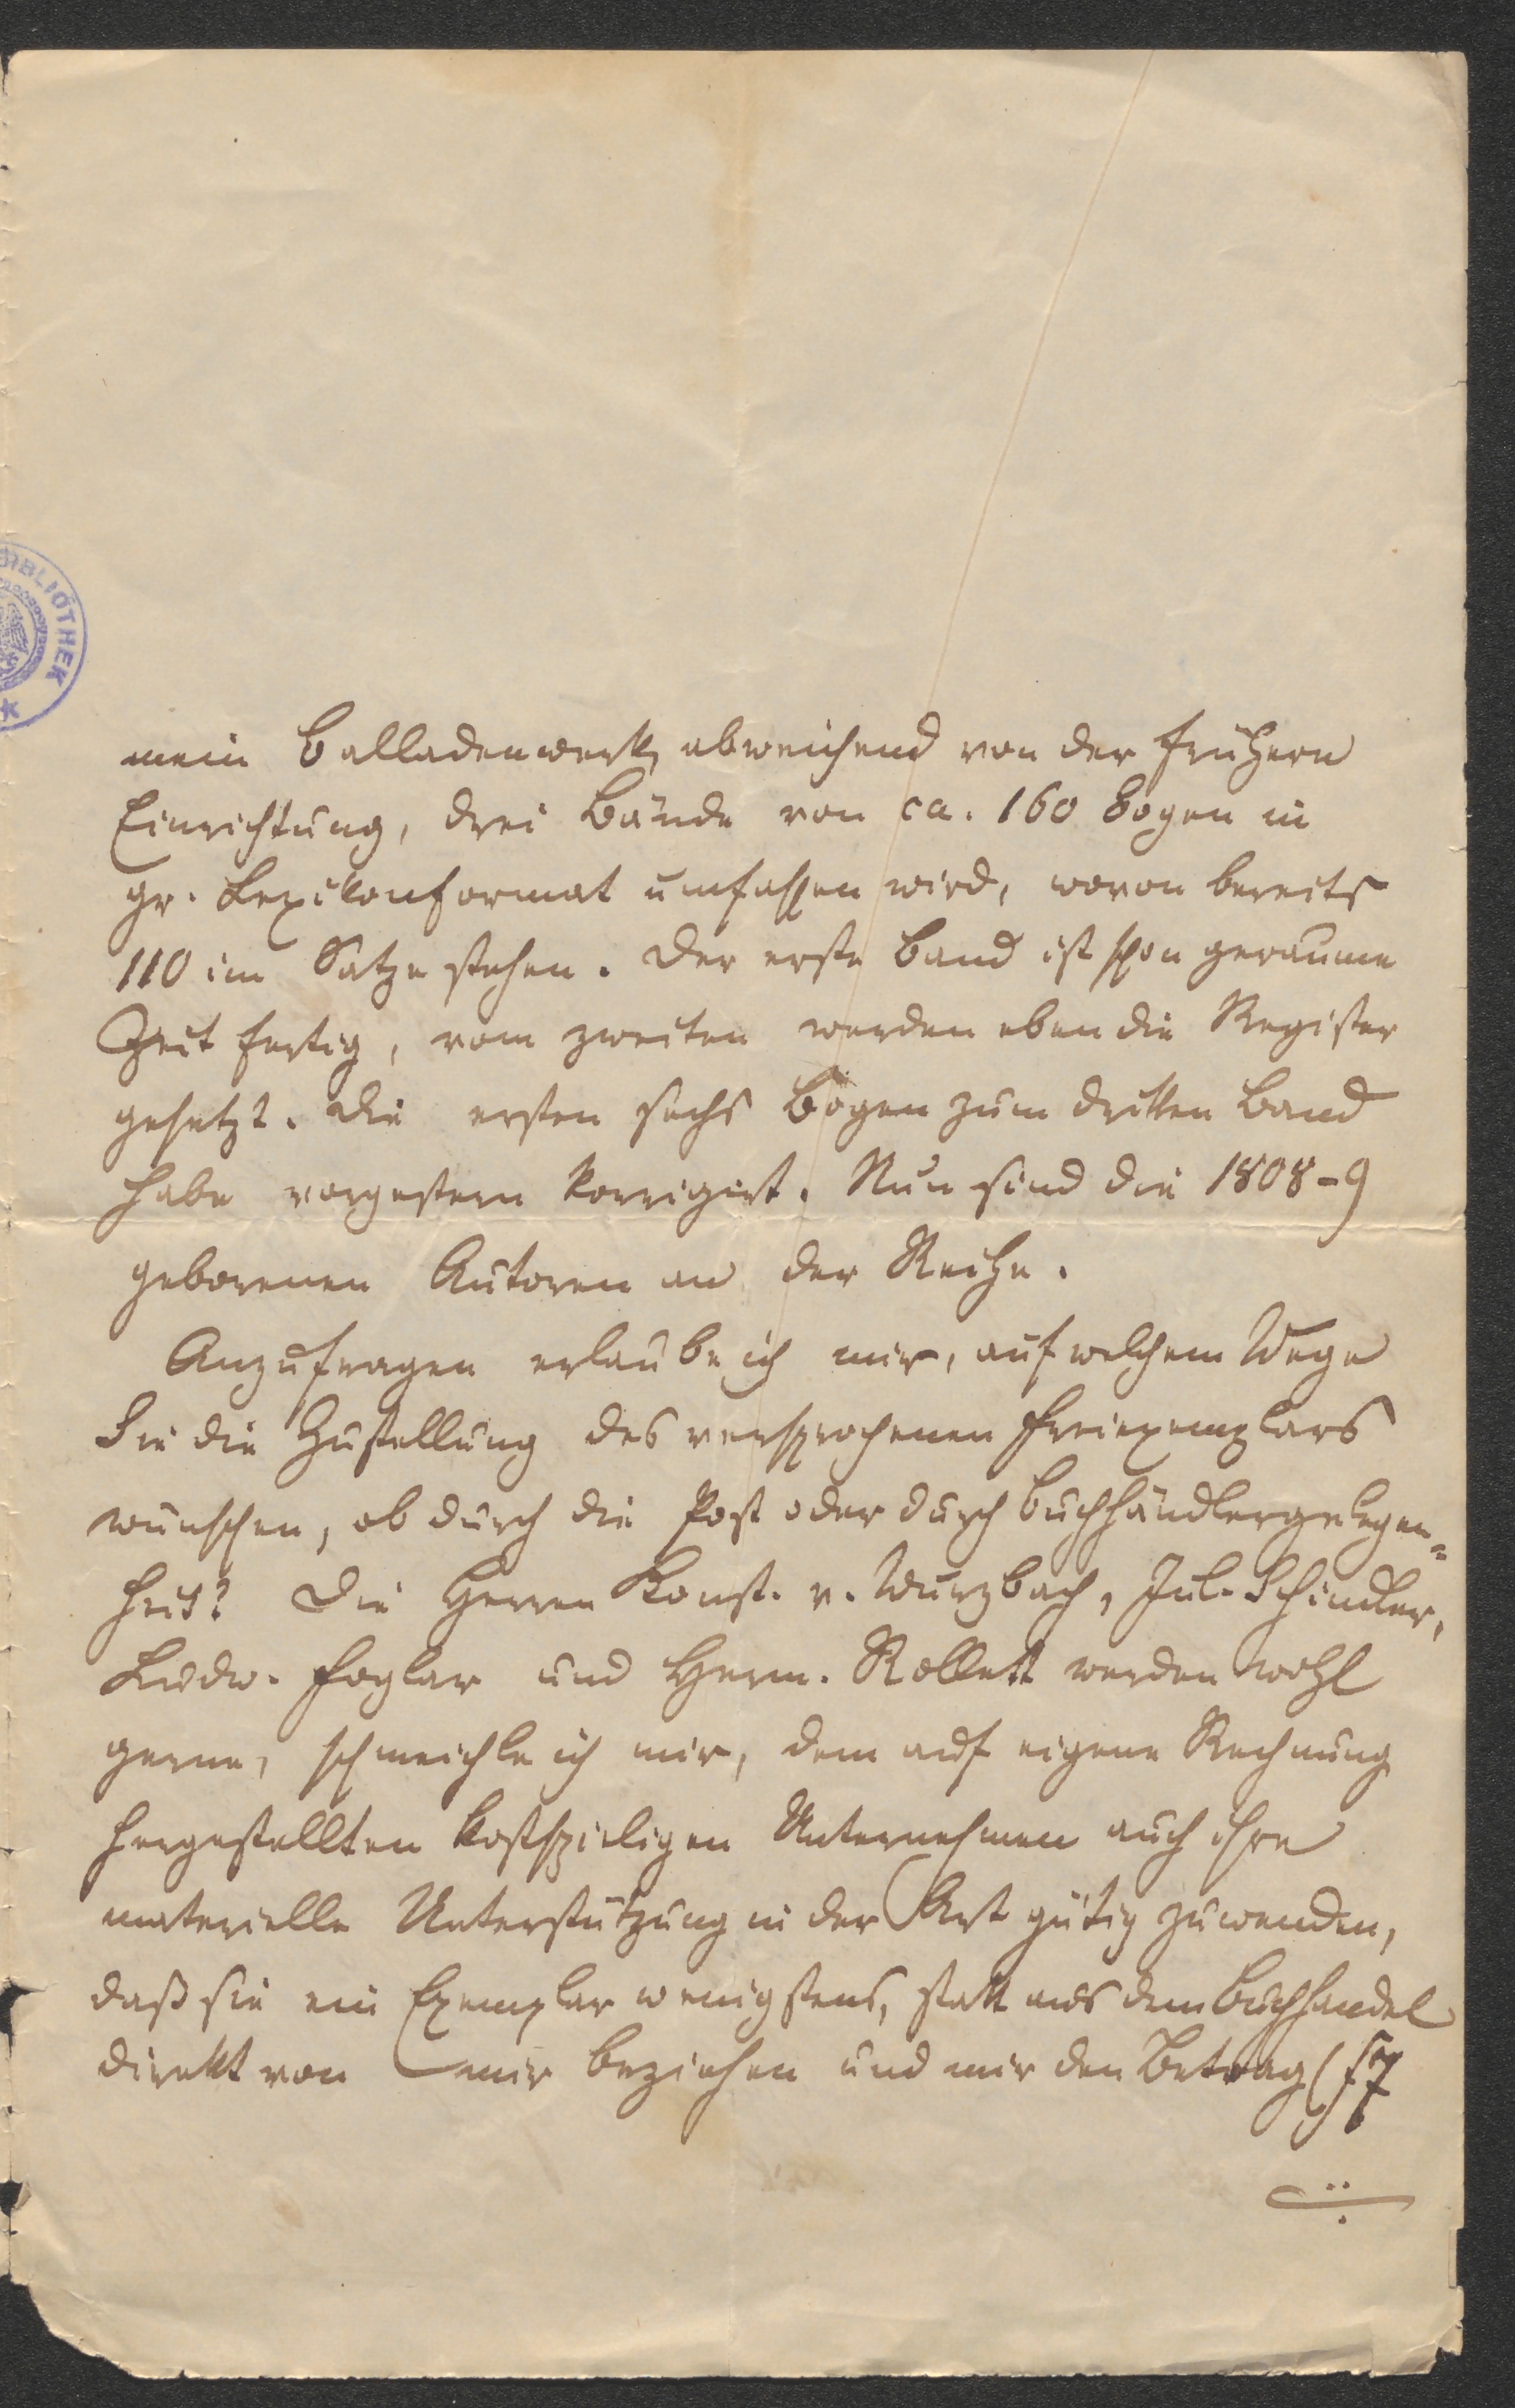 BIBLIOTHEK
mein Balladenwerk, abweichend von der frühern
Einrichtung, drei Bände von ca. 160 Bogen in
gr. Lexikonformat umfassen wird, wovon bereits
110 im Satze stehen. Der erste Band ist schon geraume
Zeit fertig, vom zweiten werden eben die Register
gesetzt. Die ersten sechs Bogen zum dritten Band
habe vorgestern korrigirt. Nun sind die 1808-9
geborenen Autoren an der Reihe.
Anzufragen erlaube ich mir, auf welchem Wege
Sie die Zustellung des versprochenen Freiexemplars
wünschen, ob durch die Post oder durch Buchhändlergelegen=
heit? Die Herren Konst. v. Wurzbach, Jul. Schindler,
Ludw. Foglar und Herm. Rollett werden wohl
gerne, schmeichle ich mir, dem auf eigene Rechnung
hergestellten kostspieligen Unternehmen auch ihre
materielle Unterstützung in der Art gütig zuwenden,
daß sie ein Exemplar wenigstens, statt aus dem Buchhandel
direkt von mir beziehen und mir den Betrag (f 7